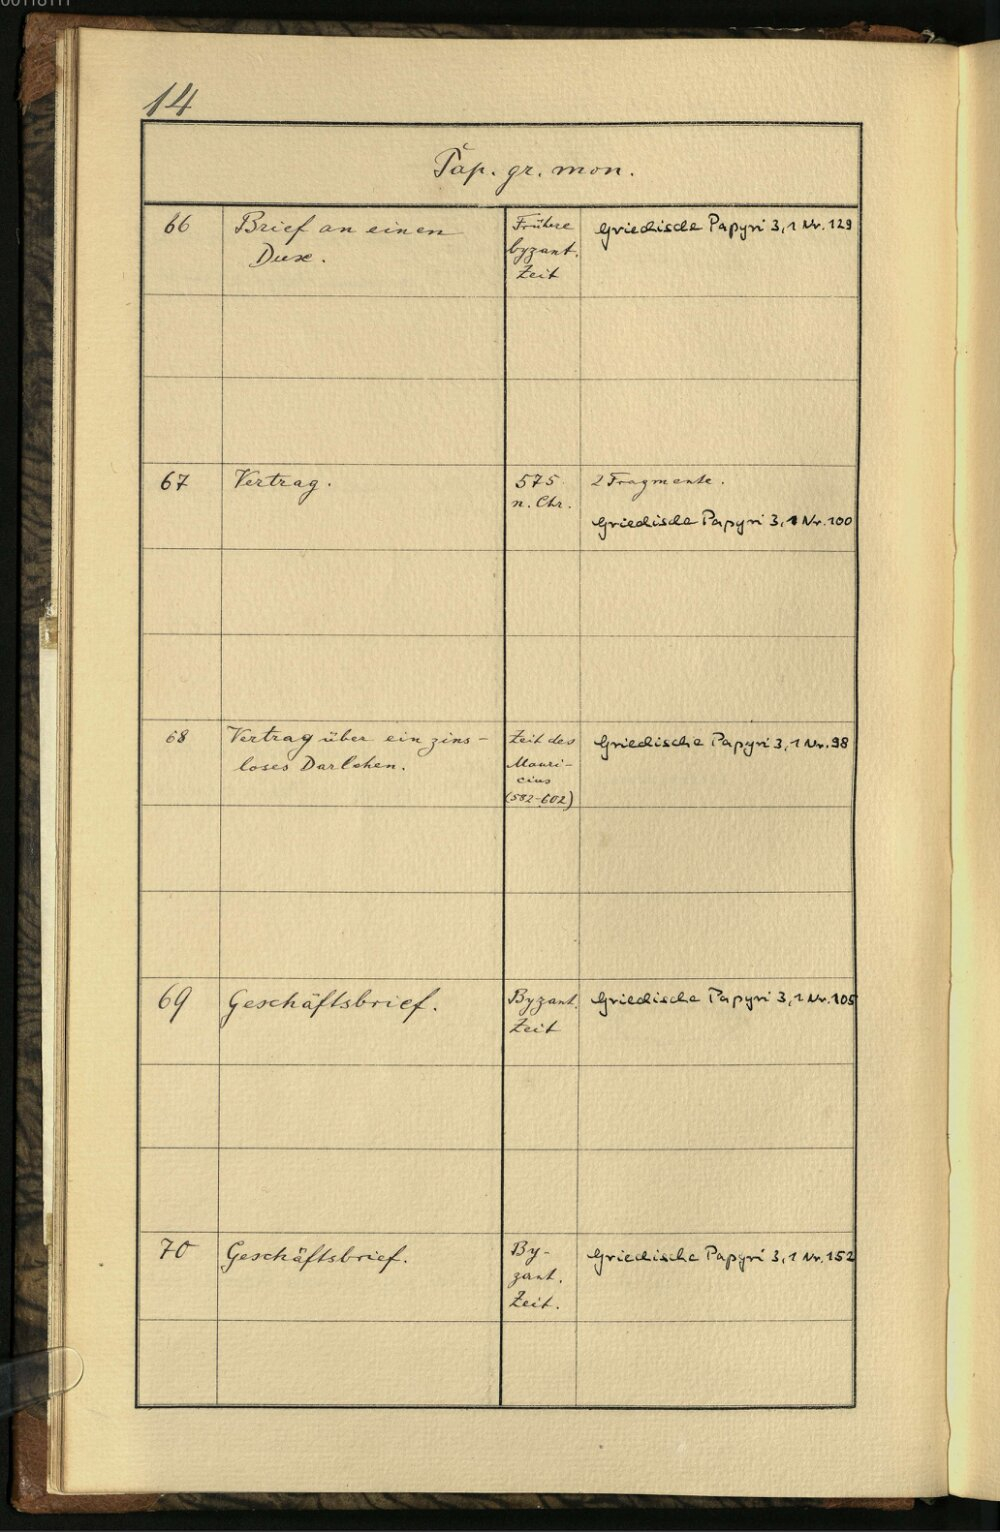 14
Pap. gr. mon.
66 Brief an einen Dux. Frühere byzant. Zeit Griechische Papyri 3,1 Nr. 129
67 Vertrag. 575 n. Chr. 2 Fragmente.
Griechische Papyri 3,1 Nr. 100
68 Vertrag über ein zins-
loses Darlehen.
Zeit des
Mauri-
cius
(582-602)
Griechische Papyri 3,1 Nr. 98
69 Geschäftsbrief. Byzant. Zeit Griechische Papyri 3,1 Nr. 105
70 Geschäftsbrief. By-
zant.
Zeit.
Griechische Papyri 3,1 Nr. 152